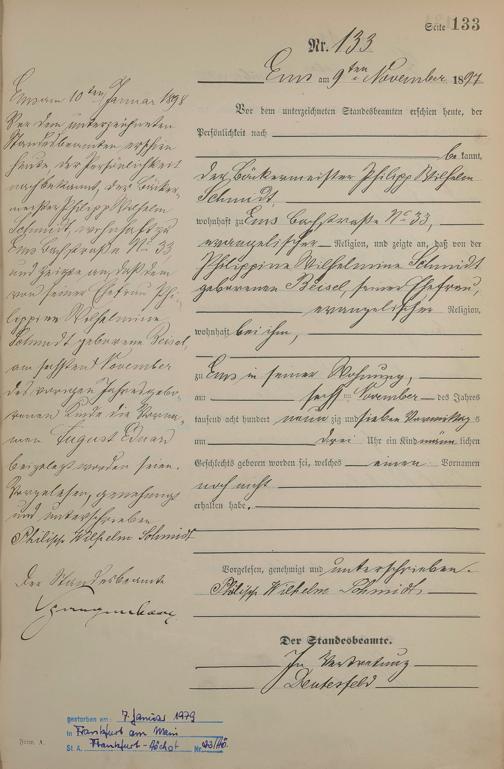 Seite 133
Nr. 133
Ems am 9ten November 1897
Vor dem unterzeichneten Standesbeamten erschien heute, der
Persönlichkeit nach
be kannt,
der Bäckermeister Philipp Wilhelm
Schmidt,
wohnhaft zu Ems Bachstraße No 33,
evangelischer Religion, und zeigte an, daß von der
Philippine Wilhelmine Schmidt
geborenen Beisel, seiner Ehefrau,
evangelischer Religion,
wohnhaft bei ihm,
zu Ems in seiner Wohnung,
am sechsten November des Jahres
tausend acht hundert neunzig und sieben Vormittags
um drei Uhr ein Kind männlichen
Geschlechts geboren worden sei, welches einen Vornamen
noch nicht
erhalten habe.
Vorgelesen, genehmigt und unterschrieben.
Philipp Wilhelm Schmidt
Der Standesbeamte.
In Vertretung
Ems am 10ten Januar 1898
Vor dem unterzeichneten
Standesbeamten erschien
heute der Persönlichkeit
nach bekannt, der Bäcker-
meister Philipp Wilhelm
Schmidt, wohnhaft zu
Ems Bachstraße No 33
und zeigte an, daß dem
von seiner Ehefrau Phi-
lippine Wilhelmine
Schmidt geborene Beisel,
am sechsten November
des vorigen Jahres gebo-
renen Kinde die Vorna-
men August Eduard
beigelegt worden seien.
Vorgelesen, genehmigt
und unterschrieben
Philipp Wilhelm Schmidt
Der Standesbeamte
gestorben am: 7. Januar 1979
in Frankfurt am Main
St. A. Frankfurt-Höchst Nr.
Form. A.